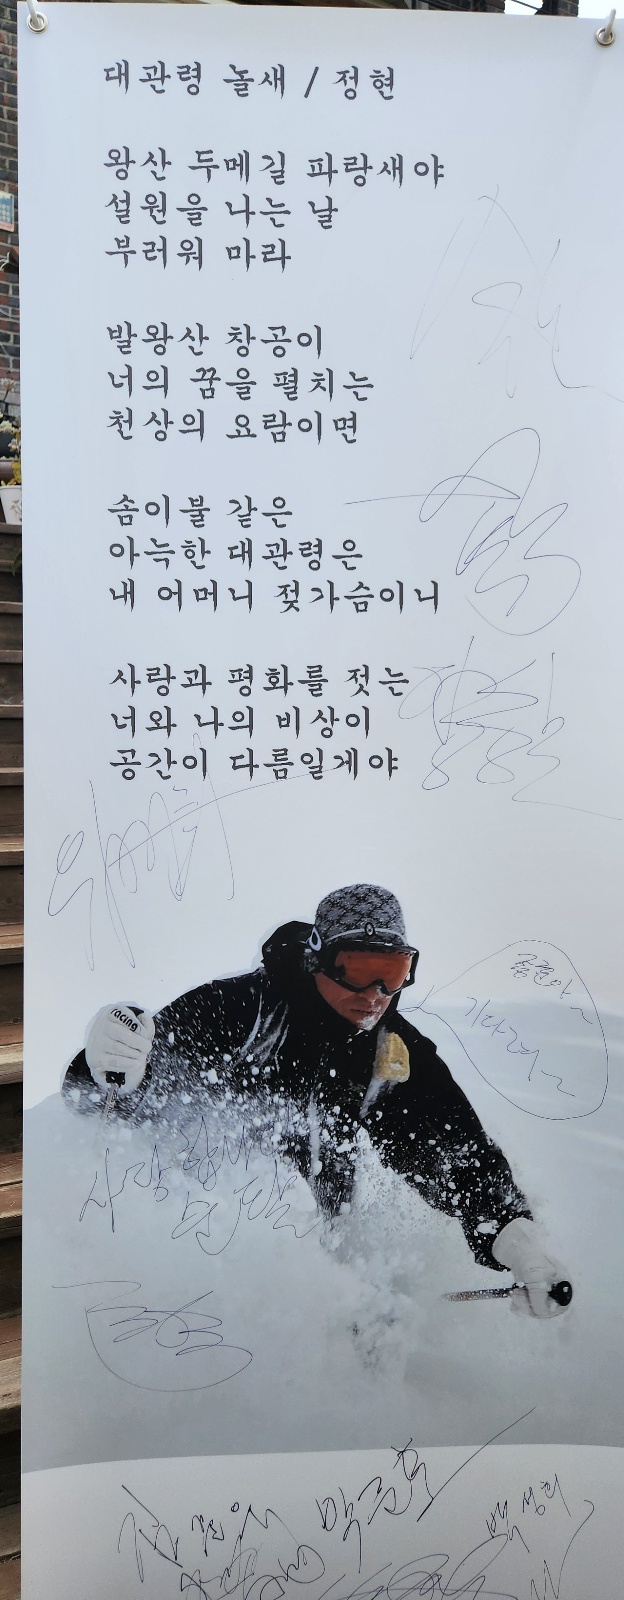 대관령 놀새 / 정현
왕산 두메길 파랑새야
설원을 나는 날
부러워 마라
발왕산 창공이
너의 꿈을 펼치는
천상의 요람이면
솜이불 같은
아늑한 대관령은
내 어머니 젖가슴이니
사랑과 평화를 젓는
너와 나의 비상이
공간이 다름일게야
racing
기다려~
사랑합니다
백성희